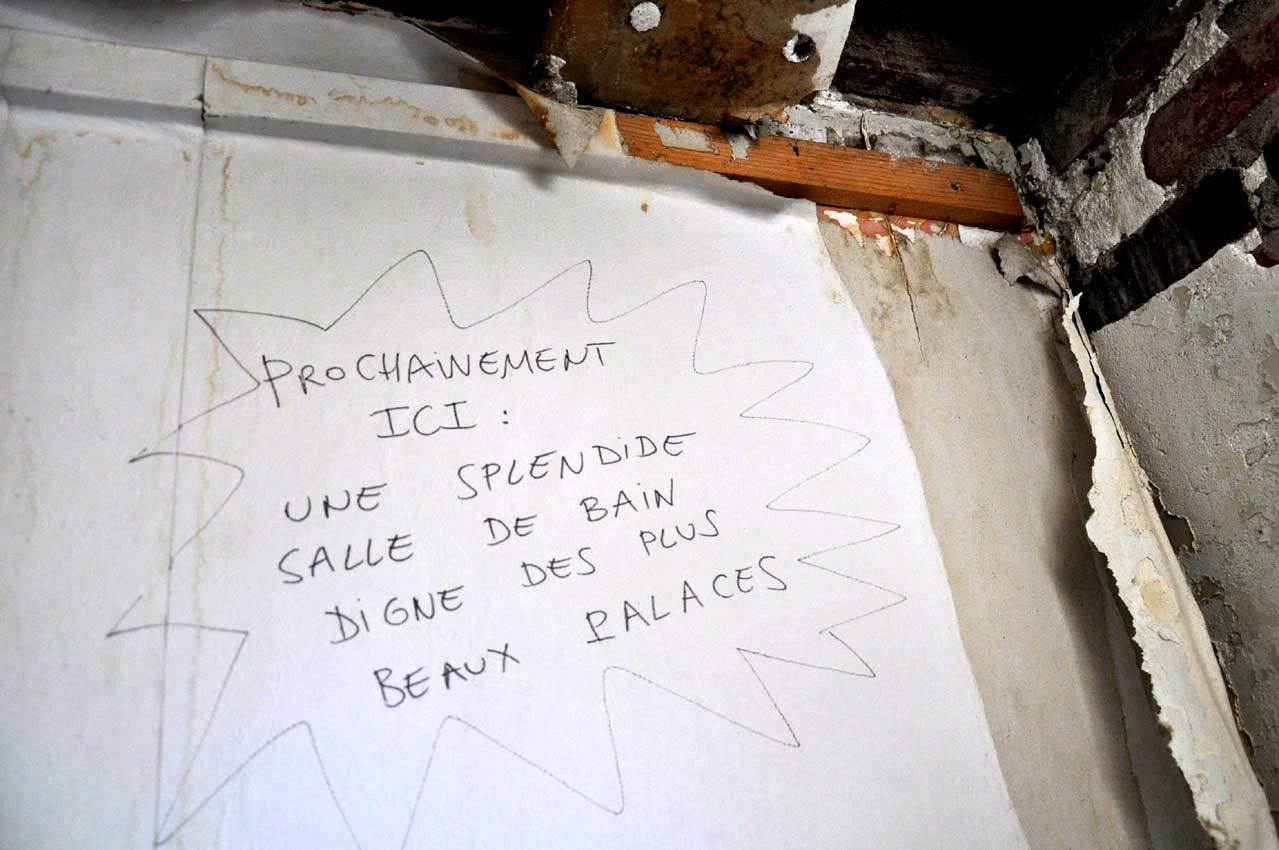 PROCHAINEMENT
ICI :
UNE SPLENDIDE
SALLE DE BAIN
DIGNE DES PLUS
BEAUX PALACES